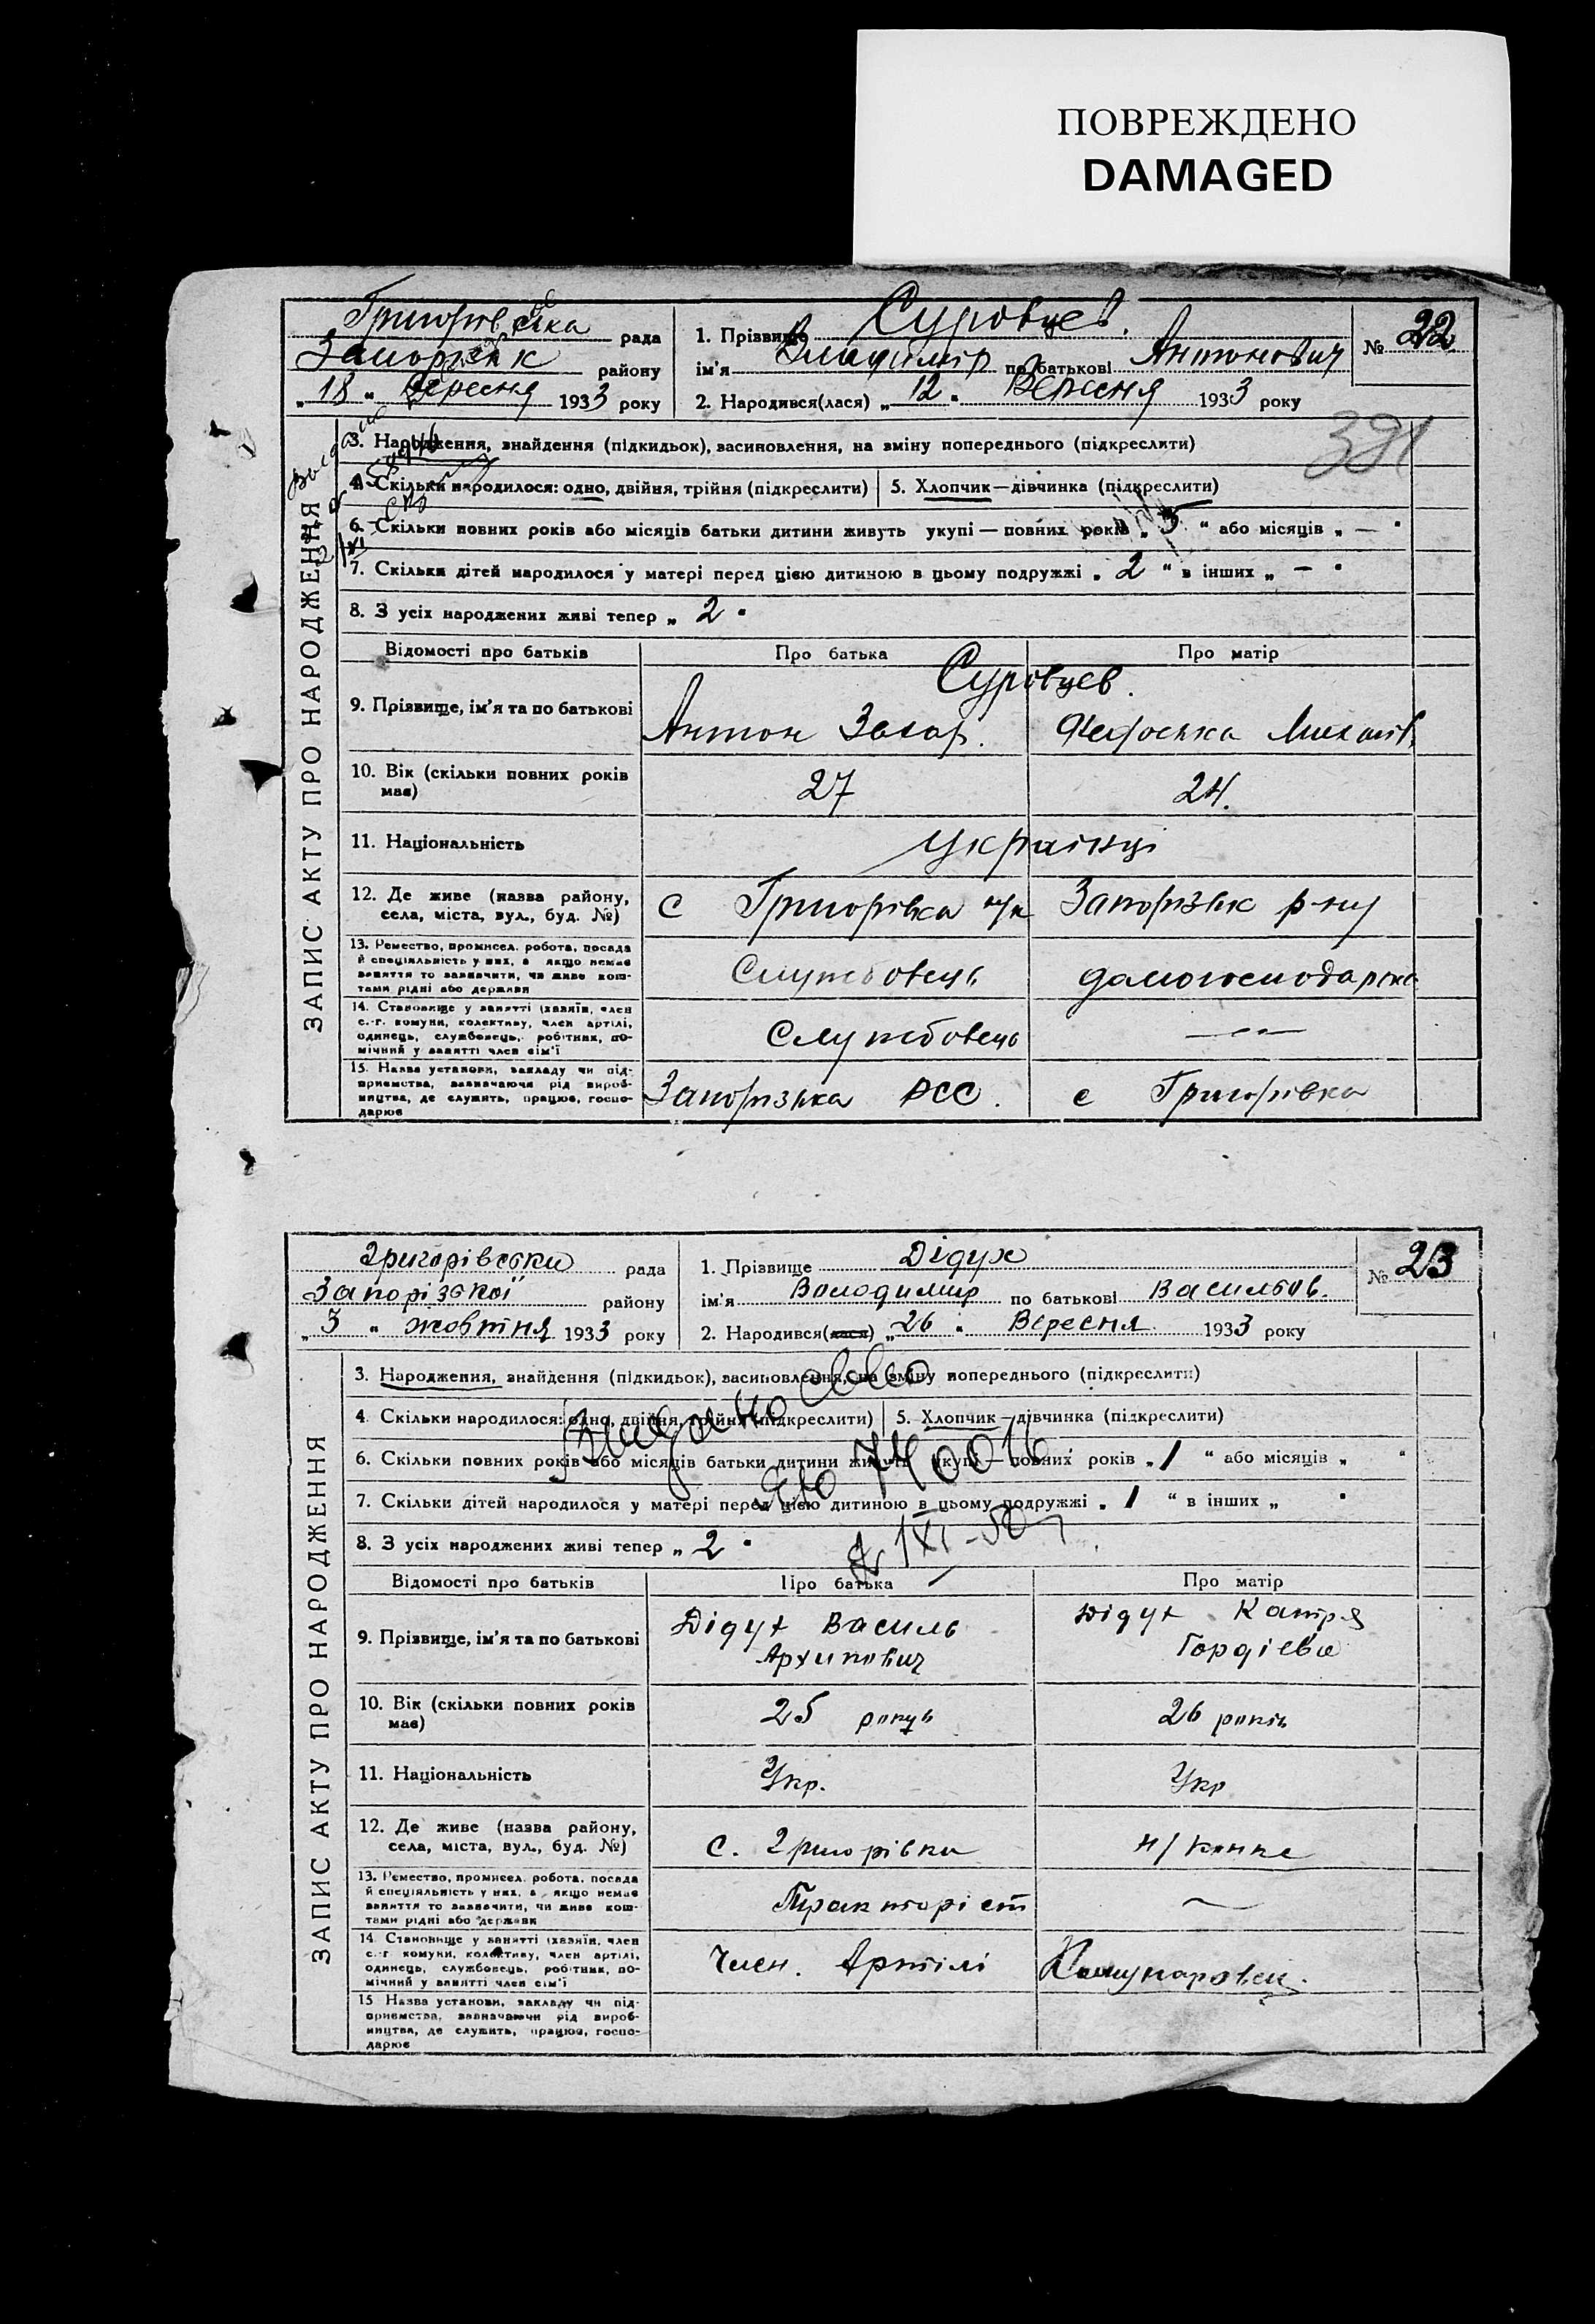 ПОВРЕЖДЕНО
DAMAGED
Григорівська рада
Запорізьк району
„18“ Вересня 1933 року
1. Прізвище Суровцев.
ім'я Владимір по батькові Антонович
2. Народився(лася) „12“ Вересня 1933 року
№ 22
391
ЗАПИС АКТУ ПРО НАРОДЖЕННЯ
3. Народження, знайдення (підкидьок), засиновлення, на зміну попереднього (підкреслити)
4. Скільки народилося: одно, двійня, трійня (підкреслити)
5. Хлопчик—дівчинка (підкреслити)
6. Скільки повних років або місяців батьки дитини живуть укупі — повних років „5“ або місяців „—“
7. Скільки дітей народилося у матері перед цією дитиною в цьому подружжі „2“ в інших „—“
8. З усіх народжених живі тепер „2“
Відомості про батьків Про батька Про матір
9. Прізвище, ім'я та по батькові
Суровцев.
Антон Захар.
10. Вік (скільки повних років має)
27
24.
11. Національність
Українці
12. Де живе (назва району, села, міста, вул., буд. №)
с Григорівка Запорізьк р-ну
13. Ремество, промисел, робота, посада й спеціяльність у них, а якщо немає заняття то зазначити, чи живе коштами рідні або держави
Службовець
домогосподарка
14. Становище у занятті (хазяїн, член с.-г. комуни, колективу, член артілі, одинець, службовець, робітник, помічний у занятті член сім'ї
Службовець
— „ —
15. Назва установи, закладу чи підприємства, зазначаючи рід виробництва, де служить, працює, господарює
Запорізька
с Григорівка
Григорівська рада
Запорізької району
„3“ жовтня 1933 року
1. Прізвище Дідух
ім'я Володимир по батькові Васильов.
2. Народився(лася) „26“ Вересня 1933 року
№ 23
ЗАПИС АКТУ ПРО НАРОДЖЕННЯ
3. Народження, знайдення (підкидьок), засиновлення, на зміну попереднього (підкреслити)
4. Скільки народилося: одно, двійня, трійня (підкреслити)
5. Хлопчик—дівчинка (підкреслити)
6. Скільки повних років або місяців батьки дитини живуть укупі — повних років „1“ або місяців „ “
7. Скільки дітей народилося у матері перед цією дитиною в цьому подружжі „1“ в інших „ “
8. З усіх народжених живі тепер „2“
Відомості про батьків Про батька Про матір
9. Прізвище, ім'я та по батькові
Дідух Василь
Архипович
Дідух Катря
Гордієва
10. Вік (скільки повних років має)
25 років
26 років
11. Національність
Укр.
Укр
12. Де живе (назва району, села, міста, вул., буд. №)
с. Григорівка
н/Конке
13. Ремество, промисел, робота, посада й спеціяльність у них, а якщо немає заняття то зазначити, чи живе коштами рідні або держави
Тракторіст
—
14. Становище у занятті (хазяїн, член с.-г. комуни, колективу, член артілі, одинець, службовець, робітник, помічний у занятті член сім'ї
Член. Артілі
15. Назва установи, закладу чи підприємства, зазначаючи рід виробництва, де служить, працює, господарює